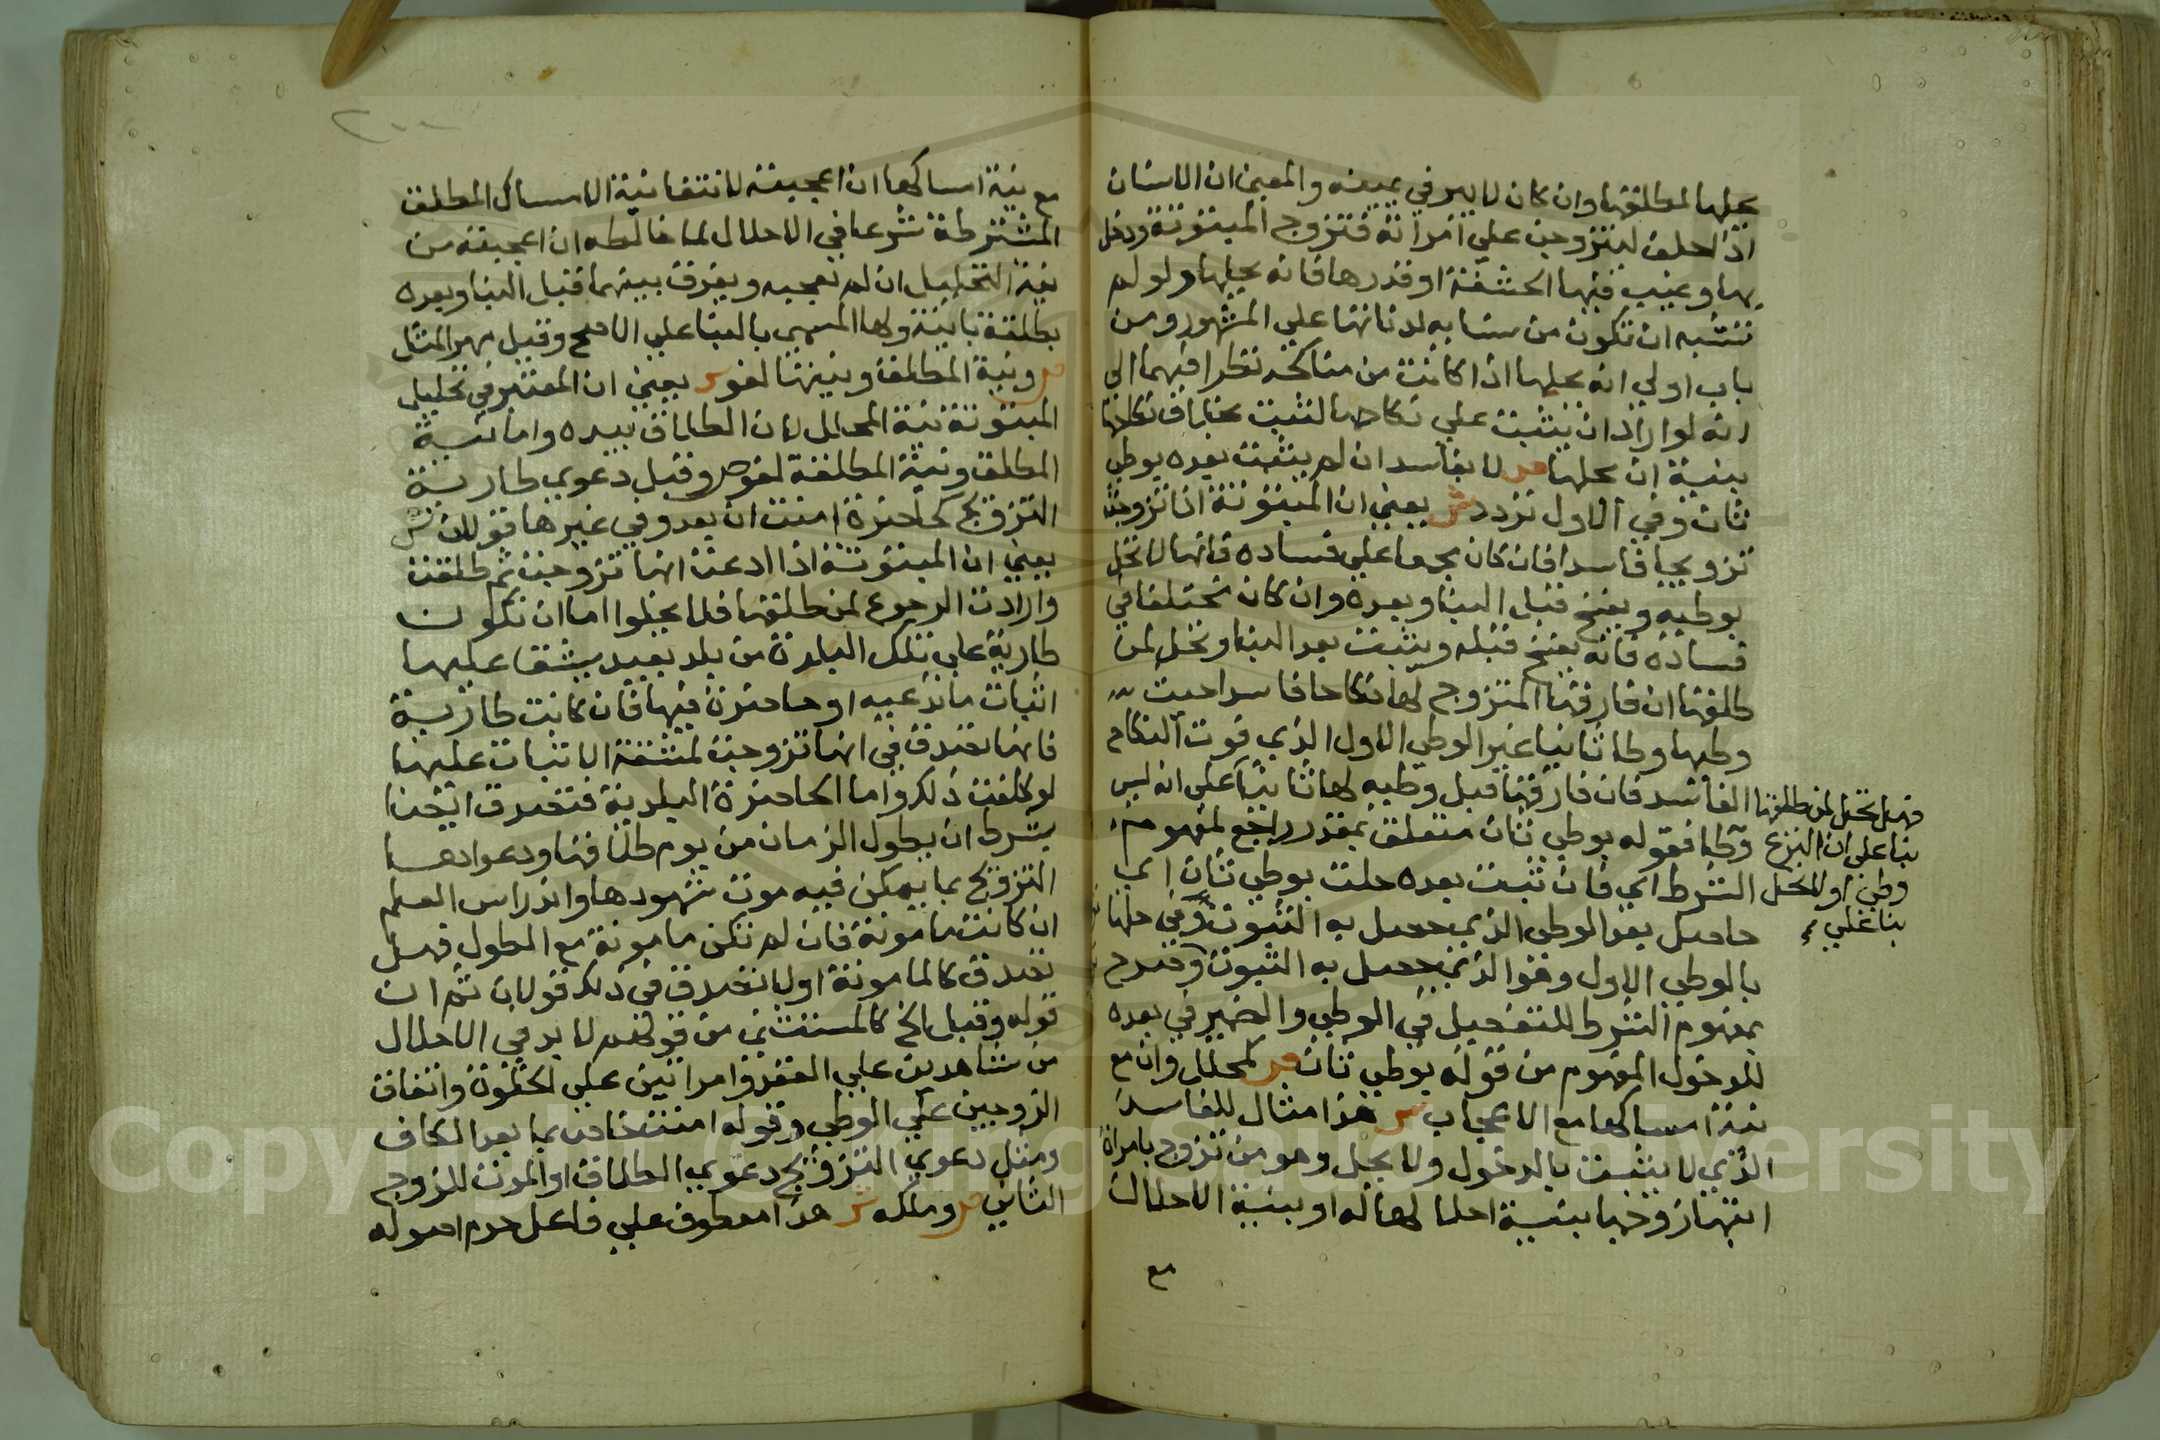 يحلها لمطلقها وان كان لا يبر في يمينه والمعنى ان الانسان
اذا حلف ليتزوجن علي امرأته فتزوج المبتوتة ودخل
بها وغيب فيها الحشفة او قدرها فانه يحلها ولو لم
تشبه ان تكون من نسايه لدناتها علي المشهور ومن
باب اولي انه يحلها اذا كانت من مناكحه نظرا فيهما الي
انه لو اراد ان يثبت علي نكاحها لثبت بخلاف نكاحها
بنية ان يحلها ص لا بفاسد ان لم يثبت بعده بوطي
ثان وفي الاول تردد ش يعني ان المبتوتة اذا تزوجت
تزويجا فاسدا فان كان مجمعا علي فساده فانها لا تحل
بوطيه ويفسخ قبل البنا وبعده وان كان مختلفا في
فساده فانه يفسخ قبله ويثبت بعد البنا وتحل لمن
طلقها ان فارقها المتزوج لها نكاحا فاسدا حيث
وطيها وطا ثانيا غير الوطي الاول الذي فوت النكاح
الفاسد فان فارقها قبل وطيه لها ثانيا علي انه ليس
وطا فقوله بوطي ثان متعلق بمقدر راجع لمفهوم
الشرط اي فان ثبت بعده حلت بوطي ثان اي
حاصل بعد الوطي الذي حصل به الثبوت وفي حلها
بالوطي الاول وهو الذي حصل به الثبوت وصرح
بمفهوم الشرط للتفصيل في الوطي والضمير في بعده
للدخول المفهوم من قوله بوطي ثان ص كمحلل وان مع
نية امساكها مع الاعجاب ش هذا مثال للفاسد
الذي لا يثبت بالدخول ولا يحل وهو من تزوج بامراة
ابتها زوجها بنية احلالها له او بنية الاحلال
مع
فهل تحل لمن طلقها
بنا علي ان النزع
وطي او لا تحل
بنا علي
مع نية امساكها ان اعجبته لانتفا نية الامساك المطلق
المشترطة شرعا في الاحلال لما خالطه ان اعجبته من
نية التحليل ان لم تعجبه ويفرق بينهما قبل البنا وبعده
بطلقة باينة ولها المسمي بالبنا علي الاصح وقيل مهر المثل
ص ونية المطلق ونيتها لغو ش يعني ان المعتبر في تحليل
المبتوتة نية المحلل لان الطلاق بيده واما نية
المطلق ونية المطلقة لغو ص وقبل دعوي طارية
التزويج كحاضرة امنت ان بعد وفي غيرها قولان ش
يعني ان المبتوتة اذا ادعت انها تزوجت ثم طلقت
وارادت الرجوع لمن طلقها فلا يخلوا اما ان تكون
طارية علي تلك البلدة من بلد بعيد يشق عليها
اثبات ما تدعيه او حاضرة فيها فان كانت طارية
فانها تصدق في انها تزوجت لمشقة الاثبات عليها
لو كلفت ذلك واما الحاضرة البلدية فتصدق ايضا
بشرط ان يطول الزمان من يوم طلاقها ودعواها
التزويج بما يمكن فيه موت شهودها واندراس العلم
ان كانت مامونة فان لم تكن مامونة مع الطول فهل
تصدق كالمامونة او لا تصدق في ذلك قولان ثم ان
قوله وقبل الخ كالمستثني من قولهم لا بد في الاحلال
من شاهدين علي العقد وامراتين علي الخلوة واتفاق
الزوجين علي الوطي وقوله امنت خاص بما بعد الكاف
ومثل دعوي التزويج دعوي الطلاق او الموت للزوج
الثاني ص وملكه ش هذا معطوف علي فاعل حرم اصوله